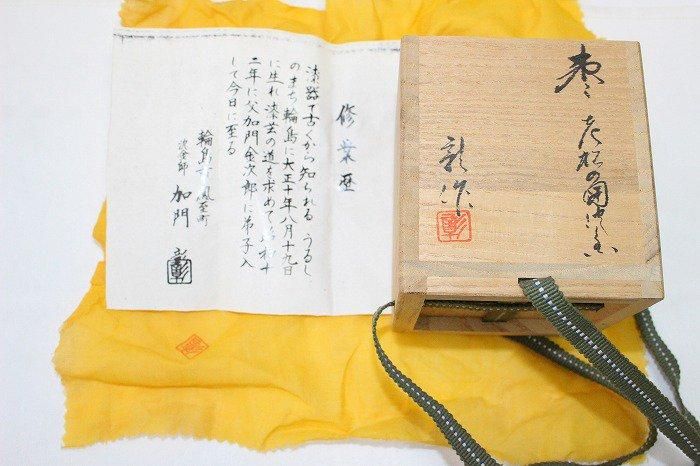 修業歴
漆器で古くから知られる うるし
のまち輪島に大正十年八月十九日
に生れ漆芸の道を求めて昭和十
二年に父加門金次郎に弟子入
して今日に至る
輪島市鳳至町
沈金師 加門 彰
棗 老松の図沈金
彰作
彰